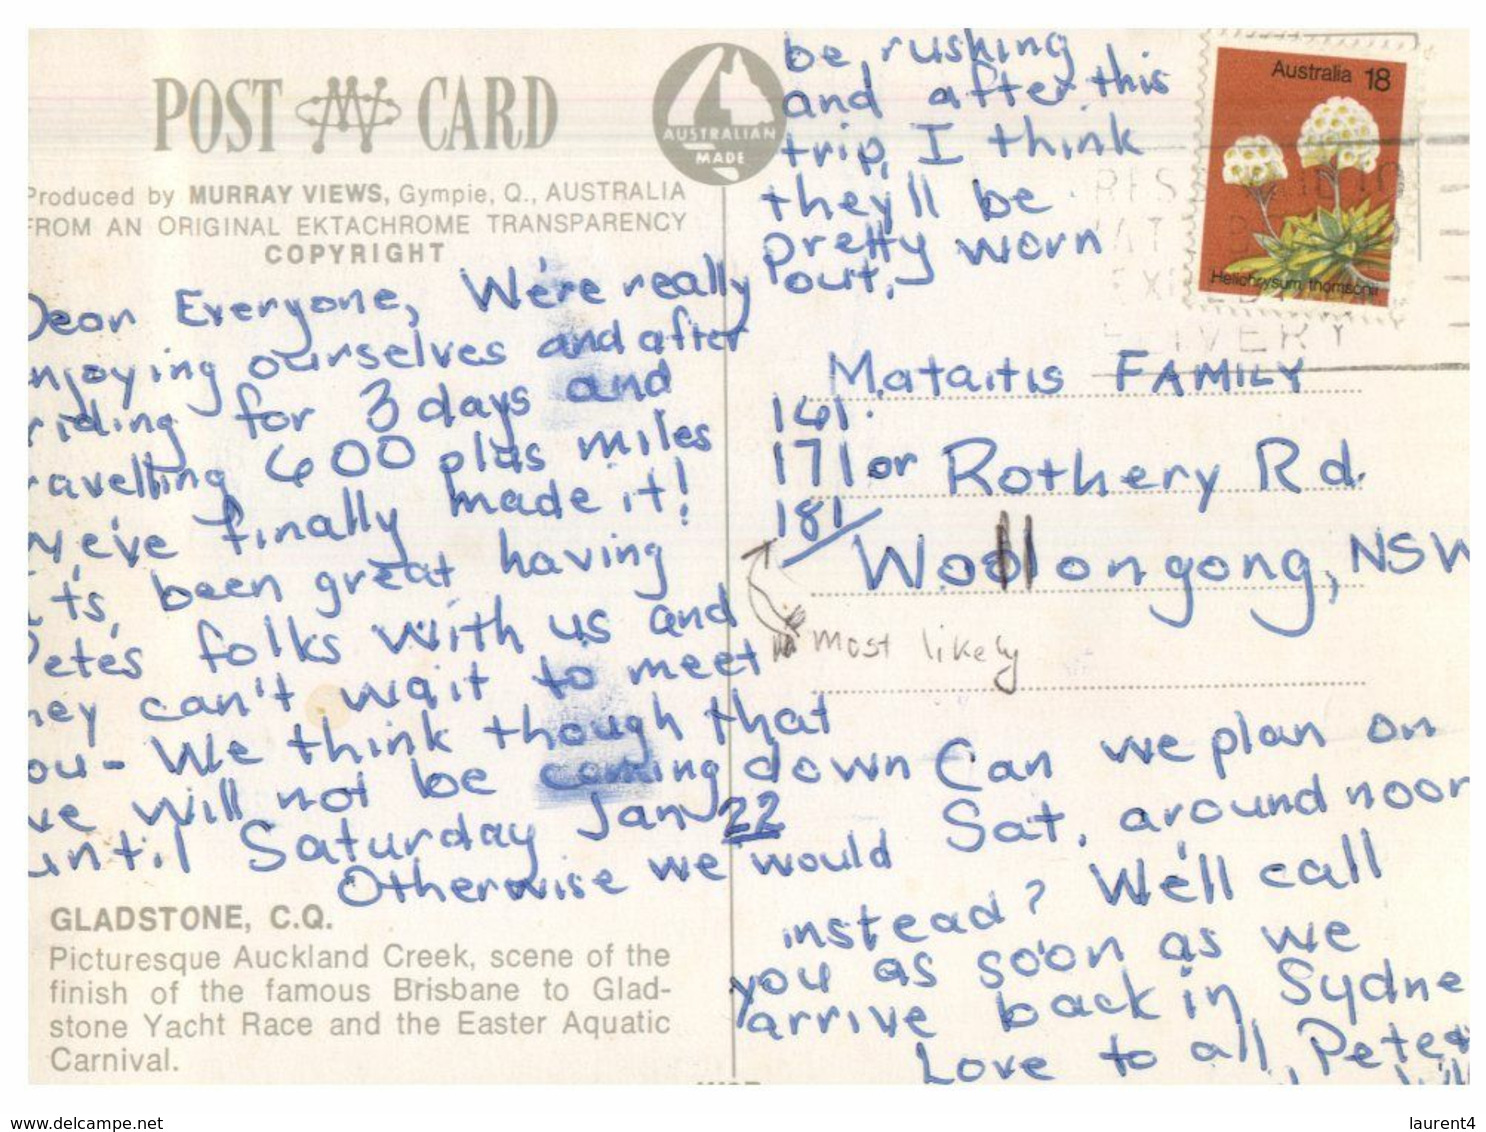 POST CARD
AUSTRALIAN
MADE
Produced by MURRAY VIEWS, Gympie, Q., AUSTRALIA
FROM AN ORIGINAL EKTACHROME TRANSPARENCY
COPYRIGHT
Dear Everyone, We're really
enjoying ourselves and after
riding for 3 days and
travelling 600 plus miles
we've finally made it!
It's been great having
Pete's folks with us and
they can't wait to meet
you - We think though that
we will not be coming down
until Saturday Jan 22
Otherwise we would
be rushing
and after this
trip, I think
they'll be
pretty worn
out.
GLADSTONE, C.Q.
Picturesque Auckland Creek, scene of the
finish of the famous Brisbane to Glad-
stone Yacht Race and the Easter Aquatic
Carnival.
Australia 18
Helichrysum thomsonii
Mataitis FAMILY
161
171 or Rothery Rd.
181
Woollongong, NSW
most likely
Can we plan on
Sat. around noon
instead? We'll call
you as soon as we
arrive back in Sydne
Love to all, Pete
www.delcampe.net
laurent4